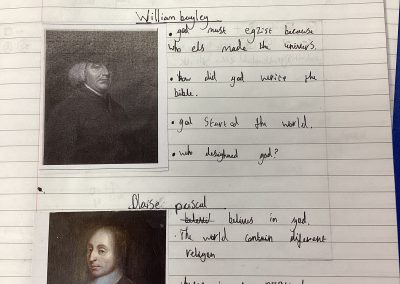 William bayley
• god must egzist because
who els made the univers.
• how did god write the
bible.
• god started the world.
• who desighned god?
Blaise pascal
believes in god.
• The world contain different
religon